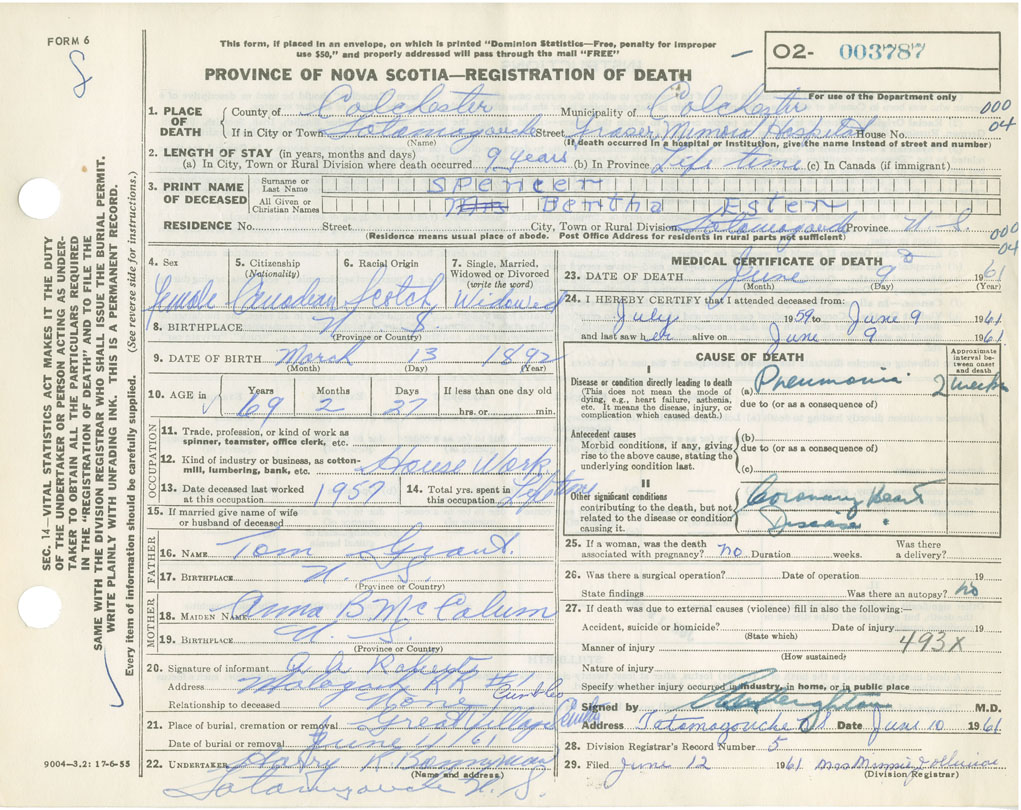 FORM 6
This form, if placed in an envelope, on which is printed "Dominion Statistics—Free, penalty for improper
use $50," and properly addressed will pass through the mail "FREE"
O2- 003787
PROVINCE OF NOVA SCOTIA—REGISTRATION OF DEATH
For use of the Department only
1. PLACE OF DEATH
County of Colchester Municipality of Colchester 000
If in City or Town Tatamagouche Street Fraser Memorial Hospital House No. 04
(Name) (If death occurred in a hospital or institution, give the name instead of street and number)
2. LENGTH OF STAY (in years, months and days)
(a) In City, Town or Rural Division where death occurred 9 years (b) In Province Life time (c) In Canada (if immigrant)
3. PRINT NAME OF DECEASED
Surname or Last Name Spencer
All Given or Christian Names Mrs Bertha Ester
RESIDENCE No. Street City, Town or Rural Division Tatamagouche Province N S. 000
(Residence means usual place of abode. Post Office Address for residents in rural parts not sufficient) 04
4. Sex 5. Citizenship (Nationality) 6. Racial Origin 7. Single, Married, Widowed or Divorced (write the word)
Female Canadian Scotch Widowed
8. BIRTHPLACE N S.
(Province or Country)
9. DATE OF BIRTH March 13 1892
(Month) (Day) (Year)
10. AGE in Years Months Days If less than one day old
69 2 27 hrs. or min.
OCCUPATION
11. Trade, profession, or kind of work as
spinner, teamster, office clerk, etc.
12. Kind of industry or business, as cotton-
mill, lumbering, bank, etc. House Work
13. Date deceased last worked at this occupation 1957 14. Total yrs. spent in this occupation Lifetime
15. If married give name of wife
or husband of deceased
FATHER
16. NAME Tom Grant.
17. BIRTHPLACE N. S.
(Province or Country)
MOTHER
18. MAIDEN NAME Anna B McCalum
19. BIRTHPLACE N. S.
(Province or Country)
20. Signature of informant
Address Malagash RR #1, Cumb Co
Relationship to deceased None
21. Place of burial, cremation or removal Great Village
Date of burial or removal June 11 61
22. UNDERTAKER Harry R Bonnyman
(Name and address)
Tatamagouche N. S.
MEDICAL CERTIFICATE OF DEATH
23. DATE OF DEATH June 9 1961
(Month) (Day) (Year)
24. I HEREBY CERTIFY that I attended deceased from:
July 1959 to June 9 1961
and last saw her alive on June 9 1961
CAUSE OF DEATH
Approximate interval between onset and death
I
Disease or condition directly leading to death (a) Pneumonia 2 weeks
(This does not mean the mode of
dying, e.g., heart failure, asthenia,
etc. It means the disease, injury, or
complication which caused death.)
due to (or as a consequence of)
Antecedent causes (b)
Morbid conditions, if any, giving
rise to the above cause, stating the
underlying condition last.
due to (or as a consequence of)
(c)
II
Other significant conditions Coronary Heart
contributing to the death, but not
related to the disease or condition
causing it.
Disease
25. If a woman, was the death
associated with pregnancy? no Duration weeks. Was there
a delivery?
26. Was there a surgical operation? Date of operation 19
State findings Was there an autopsy? no
27. If death was due to external causes (violence) fill in also the following:—
Accident, suicide or homicide? Date of injury 19
(State which)
Manner of injury 493X
(How sustained)
Nature of injury
Specify whether injury occurred in industry, in home, or in public place
Signed by M.D.
Address Tatamagouche Date June 10 1961
28. Division Registrar's Record Number 5
29. Filed June 12 1961
(Division Registrar)
SEC. 14—VITAL STATISTICS ACT MAKES IT THE DUTY
OF THE UNDERTAKER OR PERSON ACTING AS UNDER-
TAKER TO OBTAIN ALL THE PARTICULARS REQUIRED
IN THE "REGISTRATION OF DEATH" AND TO FILE THE
SAME WITH THE DIVISION REGISTRAR WHO SHALL ISSUE THE BURIAL PERMIT.
WRITE PLAINLY WITH UNFADING INK. THIS IS A PERMANENT RECORD.
Every item of information should be carefully supplied. (See reverse side for instructions.)
9004—3,2: 17-6-55